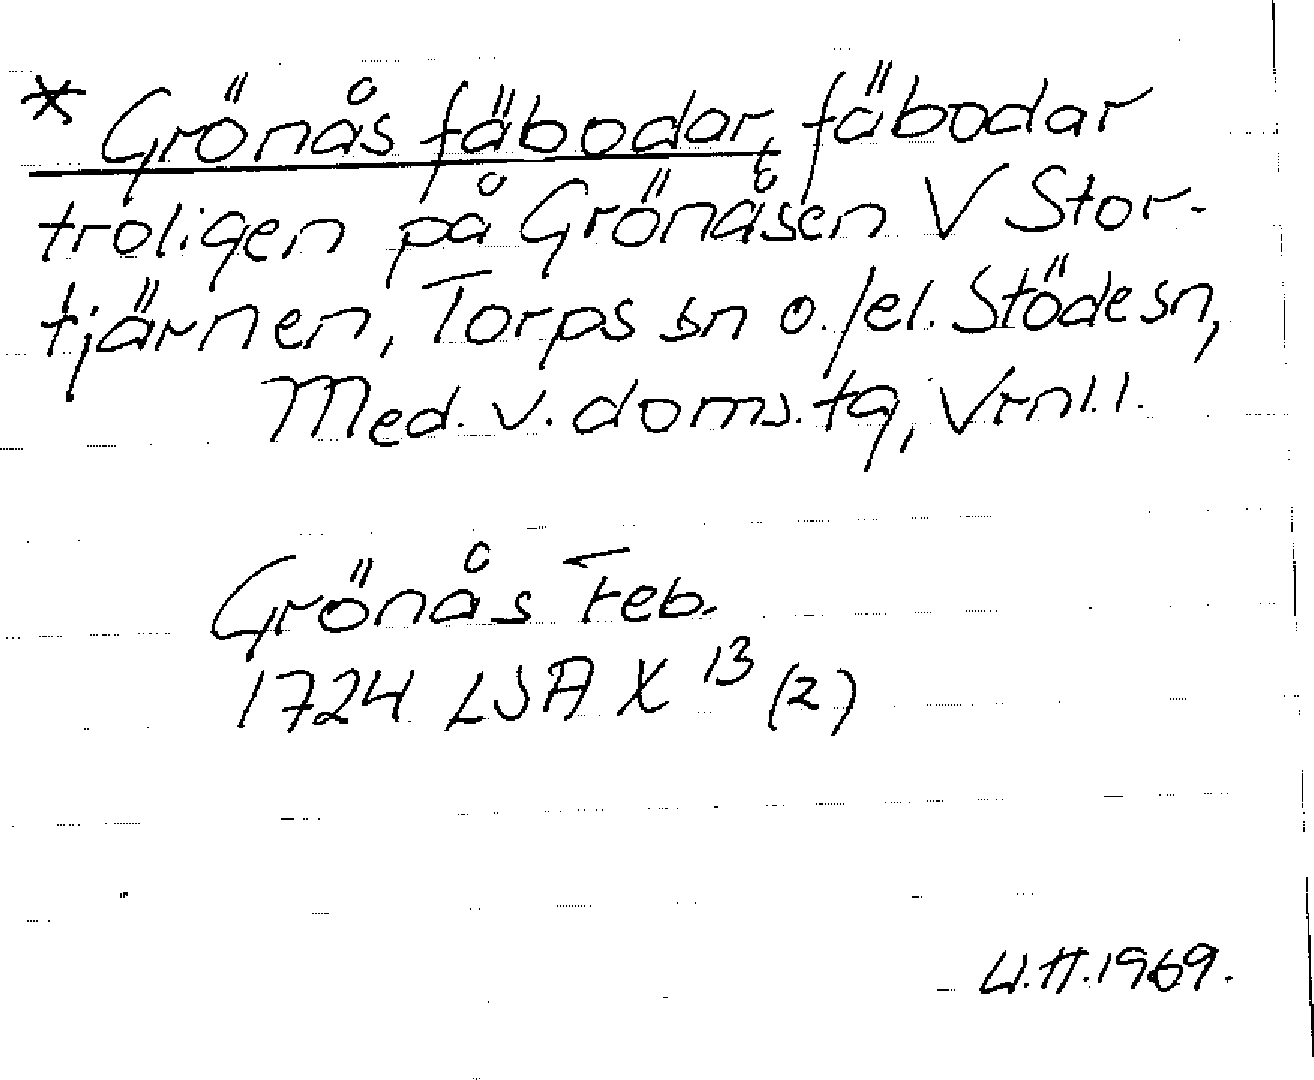 * Grönås fäbodar, fäbodar
troligen på Grönåsen V Stor-
tjärnen, Torps sn o./el. Stöde sn,
Med. v. doms. tg, Vrnl. l.
Grönås Feb.
1724 LSA X 13 (2)
U.H. 1969.